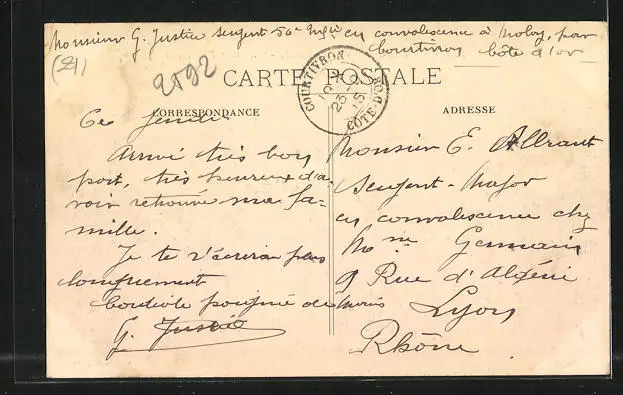 Monsieur G. Justice sergent 56e Infie en convalescence à Moloy, par
Courtivron Côte d'or
(21)
2592
CARTE POSTALE
COURTIVRON
CÔTE-D'OR
CORRESPONDANCE
ADRESSE
Ce Jeudi
Arrivé très bon
port, très heureux d'a
voir retrouvé ma fa-
mille.
Je te r'écrirai plus
longuement
Cordiale poignée de mains
G. Justice
Monsieur E.
Sergent-Major
en convalescence chez
Mme Germain
9 Rue d'Algérie
Lyon
Rhône